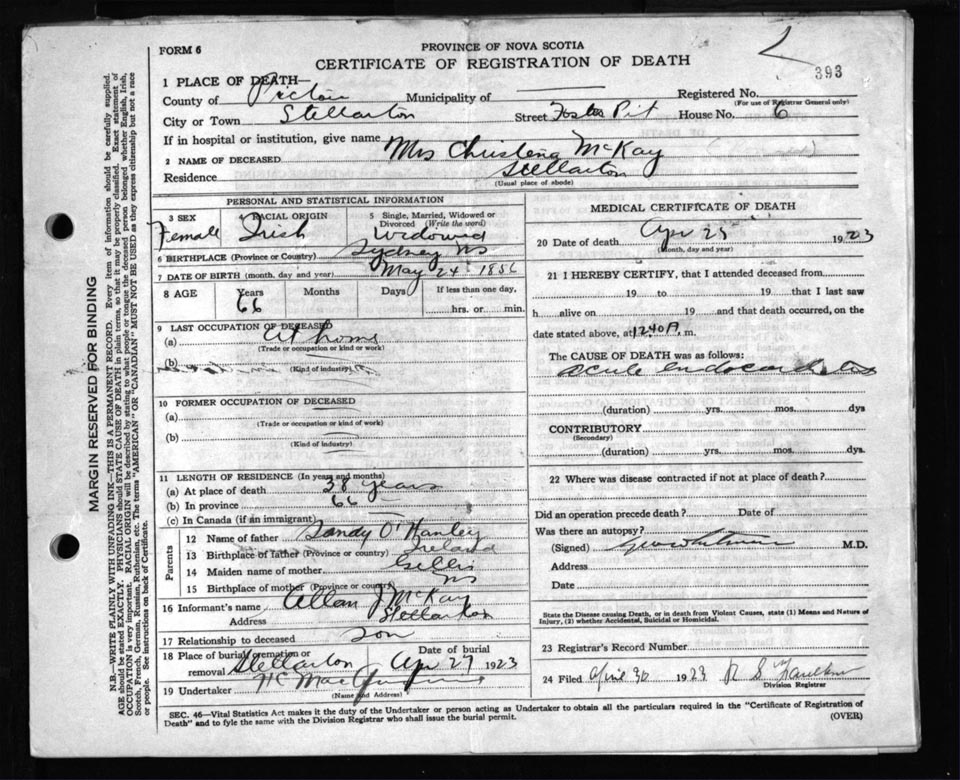 FORM 6
PROVINCE OF NOVA SCOTIA
CERTIFICATE OF REGISTRATION OF DEATH
393
1 PLACE OF DEATH—
County of Pictou Municipality of Registered No.
(For use of Registrar General only)
City or Town Stellarton Street Foster Pit House No. 6
If in hospital or institution, give name
2 NAME OF DECEASED Mrs Christena McKay
Residence Stellarton
(Usual place of abode)
PERSONAL AND STATISTICAL INFORMATION
3 SEX 4 RACIAL ORIGIN 5 Single, Married, Widowed or Divorced (Write the word)
Female Irish Widowed
6 BIRTHPLACE (Province or Country) Sydney NS
7 DATE OF BIRTH (month, day and year) May 24 1856
8 AGE Years Months Days If less than one day,
66 hrs. or min.
9 LAST OCCUPATION OF DECEASED
(a) At home
(Trade or occupation or kind or work)
(b)
(Kind of industry)
10 FORMER OCCUPATION OF DECEASED
(a)
(Trade or occupation or kind of work)
(b)
(Kind of industry)
11 LENGTH OF RESIDENCE (In years and months)
(a) At place of death 38 years
(b) In province 66
(c) In Canada (if an immigrant)
Parents
12 Name of father Sandy O'Hanley
13 Birthplace of father (Province or country) Ireland
14 Maiden name of mother Gillis
15 Birthplace of mother (Province or country) NS
16 Informant's name Allan J McKay
Address Stellarton
17 Relationship to deceased son
18 Place of burial, cremation or removal Stellarton Date of burial Apr 27 1923
19 Undertaker
(Name and Address)
MEDICAL CERTIFICATE OF DEATH
20 Date of death Apr 25 1923
(Month, day and year)
21 I HEREBY CERTIFY, that I attended deceased from
19 to 19 that I last saw
h alive on 19 and that death occurred, on the
date stated above, at 12 40 A. m.
The CAUSE OF DEATH was as follows:
acute endocarditis
(duration) yrs. mos. dys
CONTRIBUTORY
(Secondary)
(duration) yrs. mos. dys.
22 Where was disease contracted if not at place of death?
Did an operation precede death? Date of
Was there an autopsy?
(Signed) M.D.
Address
Date
State the Disease causing Death, or in death from Violent Causes, state (1) Means and Nature of
Injury, (2) whether Accidental, Suicidal or Homicidal.
23 Registrar's Record Number
24 Filed April 30 1923 R S
Division Registrar
SEC. 46—Vital Statistics Act makes it the duty of the Undertaker or person acting as Undertaker to obtain all the particulars required in the "Certificate of Registration of
Death" and to fyle the same with the Division Registrar who shall issue the burial permit.
(OVER)
MARGIN RESERVED FOR BINDING
N.B.—WRITE PLAINLY WITH UNFADING INK—THIS IS A PERMANENT RECORD. Every item of information should be carefully supplied.
AGE should be stated EXACTLY. PHYSICIANS should STATE CAUSE OF DEATH in plain terms, so that it may be properly classified. Exact statement of
OCCUPATION is very important. RACIAL ORIGIN will be described by stating to what people or tongue the deceased person belonged whether English, Irish,
Scotch, French, German, Russian, Ruthenian, etc. The terms "AMERICAN" OR "CANADIAN" MUST NOT BE USED as they express citizenship but not a race
or people. See instructions on back of Certificate.